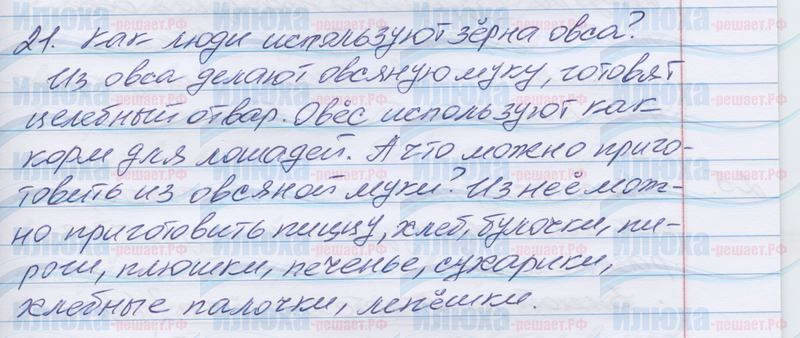 21. Как люди используют зёрна овса?
Из овса делают овсяную муку, готовят
целебный отвар. Овёс используют как
корм для лошадей. А что можно приго-
товить из овсяной муки? Из неё мож-
но приготовить пиццу, хлеб, булочки, пи-
роги, плюшки, печенье, сухарики,
хлебные палочки, лепёшки.